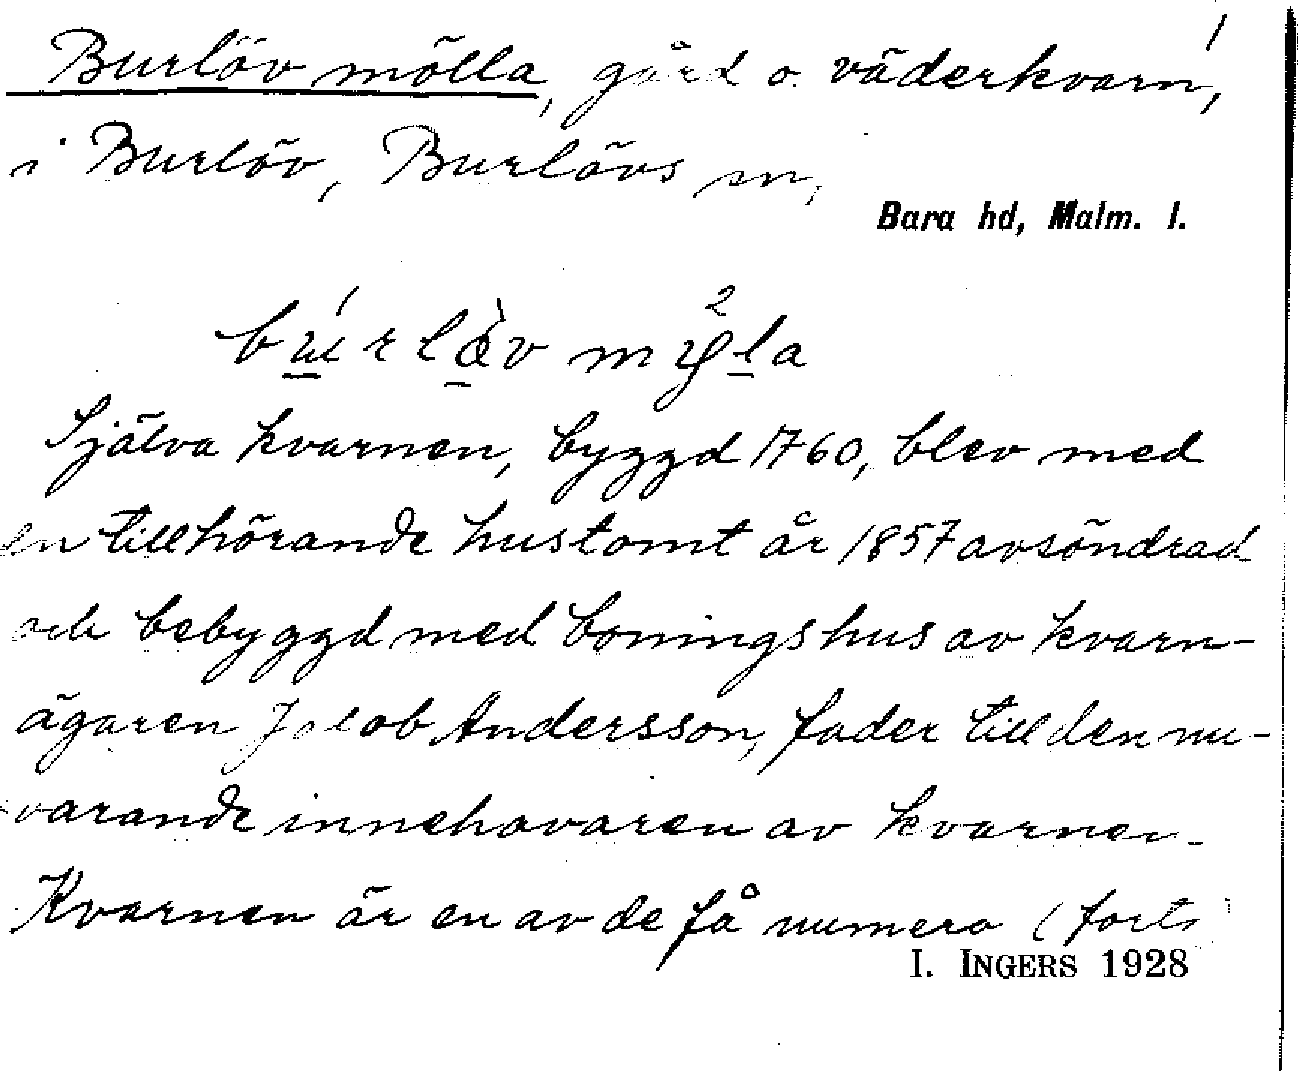 1
Burlöv mölla, gård o. väderkvarn,
i Burlöv, Burlövs sn,
Bara hd, Malm. l.
Själva kvarnen, byggd 1760, blev med
en tillhörande hustomt år 1857 avsöndrad
och bebyggd med boningshus av kvarn-
ägaren Jakob Andersson, fader till den nu-
varande innehavaren av kvarnen.
Kvarnen är en av de få numera (forts
I. INGERS 1928